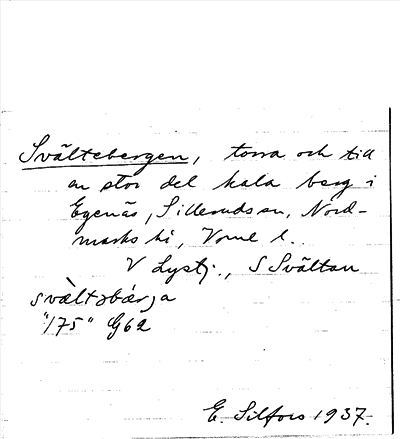 Svältebergen, torra och till
en stor del kala berg i
Egenäs, Sillerudssn, Nord-
marks hd, Vrml l..
V Lystj., S Svältan
svæ̀ltəbǽrja
"175" G62
E. Silfors 1937.